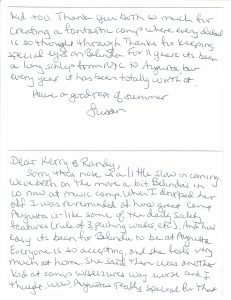 kid too. Thank you both so much for
creating a fantastic camp where every detail
is so thought through. Thanks for keeping
special eye on Belinda for 11 years its been
a long schlep from NYC to Augusta but
every year it has been totally worth it
Have a good rest of summer
Susan
Dear Kerry & Randy,
Sorry this note is a little slow in coming.
We've been on the move a bit. Belinda's in
CO now at music camp. When I dropped her
off I was reminded of how great Camp
Augusta is - like some of the daily safety
features (rule of 3, pushing walks, etc.). And how
easy its been for Belinda to be at Augusta.
Everyone is so accepting, and she feels very
much at home. She said there was another
kid at camp w/seizures way worse and I
thought wow, Augusta's really special for that